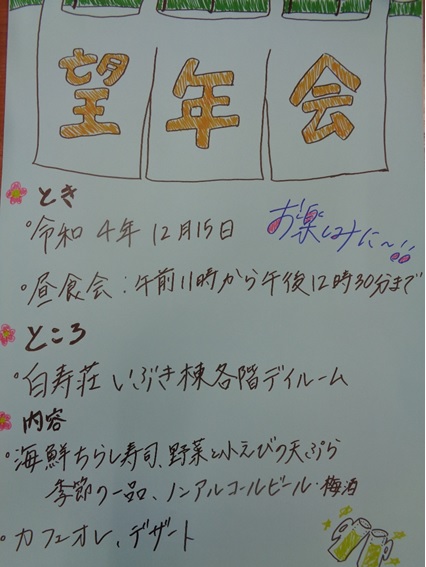 望年会
とき
・令和4年12月15日
お楽しみに〜!!
・昼食会:午前11時から午後12時30分まで
ところ
・白寿荘いぶき棟各階デイルーム
内容
・海鮮ちらし寿司、野菜と小えびの天ぷら
季節の一品、ノンアルコールビール・梅酒
・カフェオレ、デザート